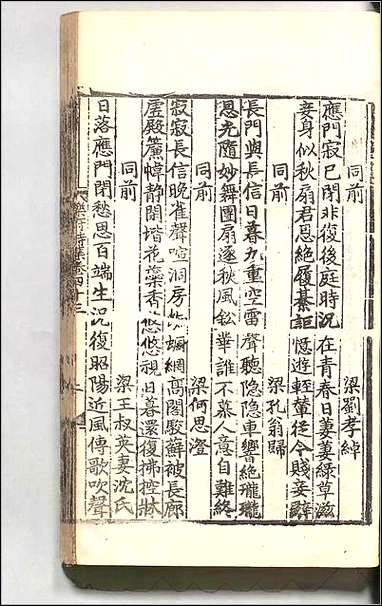 同前 梁劉孝綽
應門寂已閉非復後庭時況在青春日萋萋綠草滋
妾身似秋扇君恩絕履綦詎憶遊輕輦從今賤妾辭
同前 梁孔翁歸
長門與長信日暮九重空雷聲聽隱隱車響絕瓏瓏
恩光隨妙舞團扇逐秋風鈆華誰不慕人意自難終
同前 梁何思澄
寂寂長信晚雀聲喧洞房蜘網高閣駮蘚被長廊
虛殿簾幃靜閒堦花蘂香悠悠視日暮還復拂控牀
同前 梁王叔英妻沈氏
日落應門閉愁思百端生況復昭陽近風傳歌吹聲
樂府詩集卷四十三